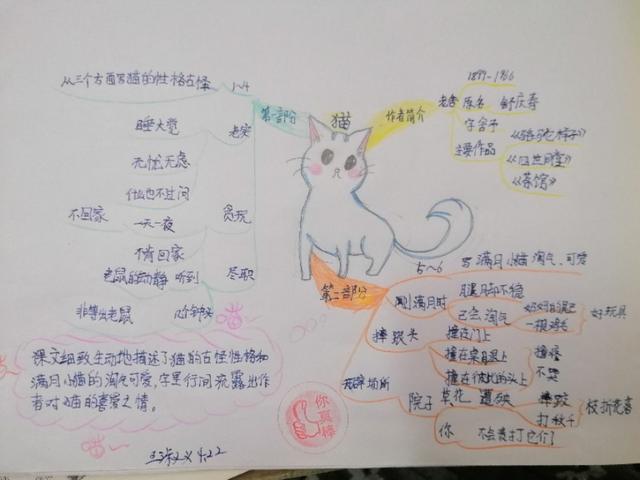 猫
作者简介
1899-1966
老舍
原名 舒庆春
字舍予
主要作品
《骆驼祥子》
《四世同堂》
《茶馆》
第一部分
1~4
从三个方面写猫的性格古怪
老实
睡大觉
无忧无虑
贪玩
什么也不过问
一天一夜
不回家
不肯回家
尽职
老鼠的动静 听到
几个钟头
非等出老鼠
喵
第二部分
5~6
写满月小猫 淘气、可爱
刚满月时
腿脚不稳
已会淘气
一根鸡毛
好玩具
摔跟头
撞在门上
撞在桌腿上
撞在彼此的头上
撞疼
不哭
院子
花草
遭殃
摔跤
打秋千
枝折花落
你
不会责打它们
课文细致生动地描述了猫的古怪性格和
满月小猫的淘气可爱,字里行间流露出作
者对小猫的喜爱之情。
喵
你真棒
4.22